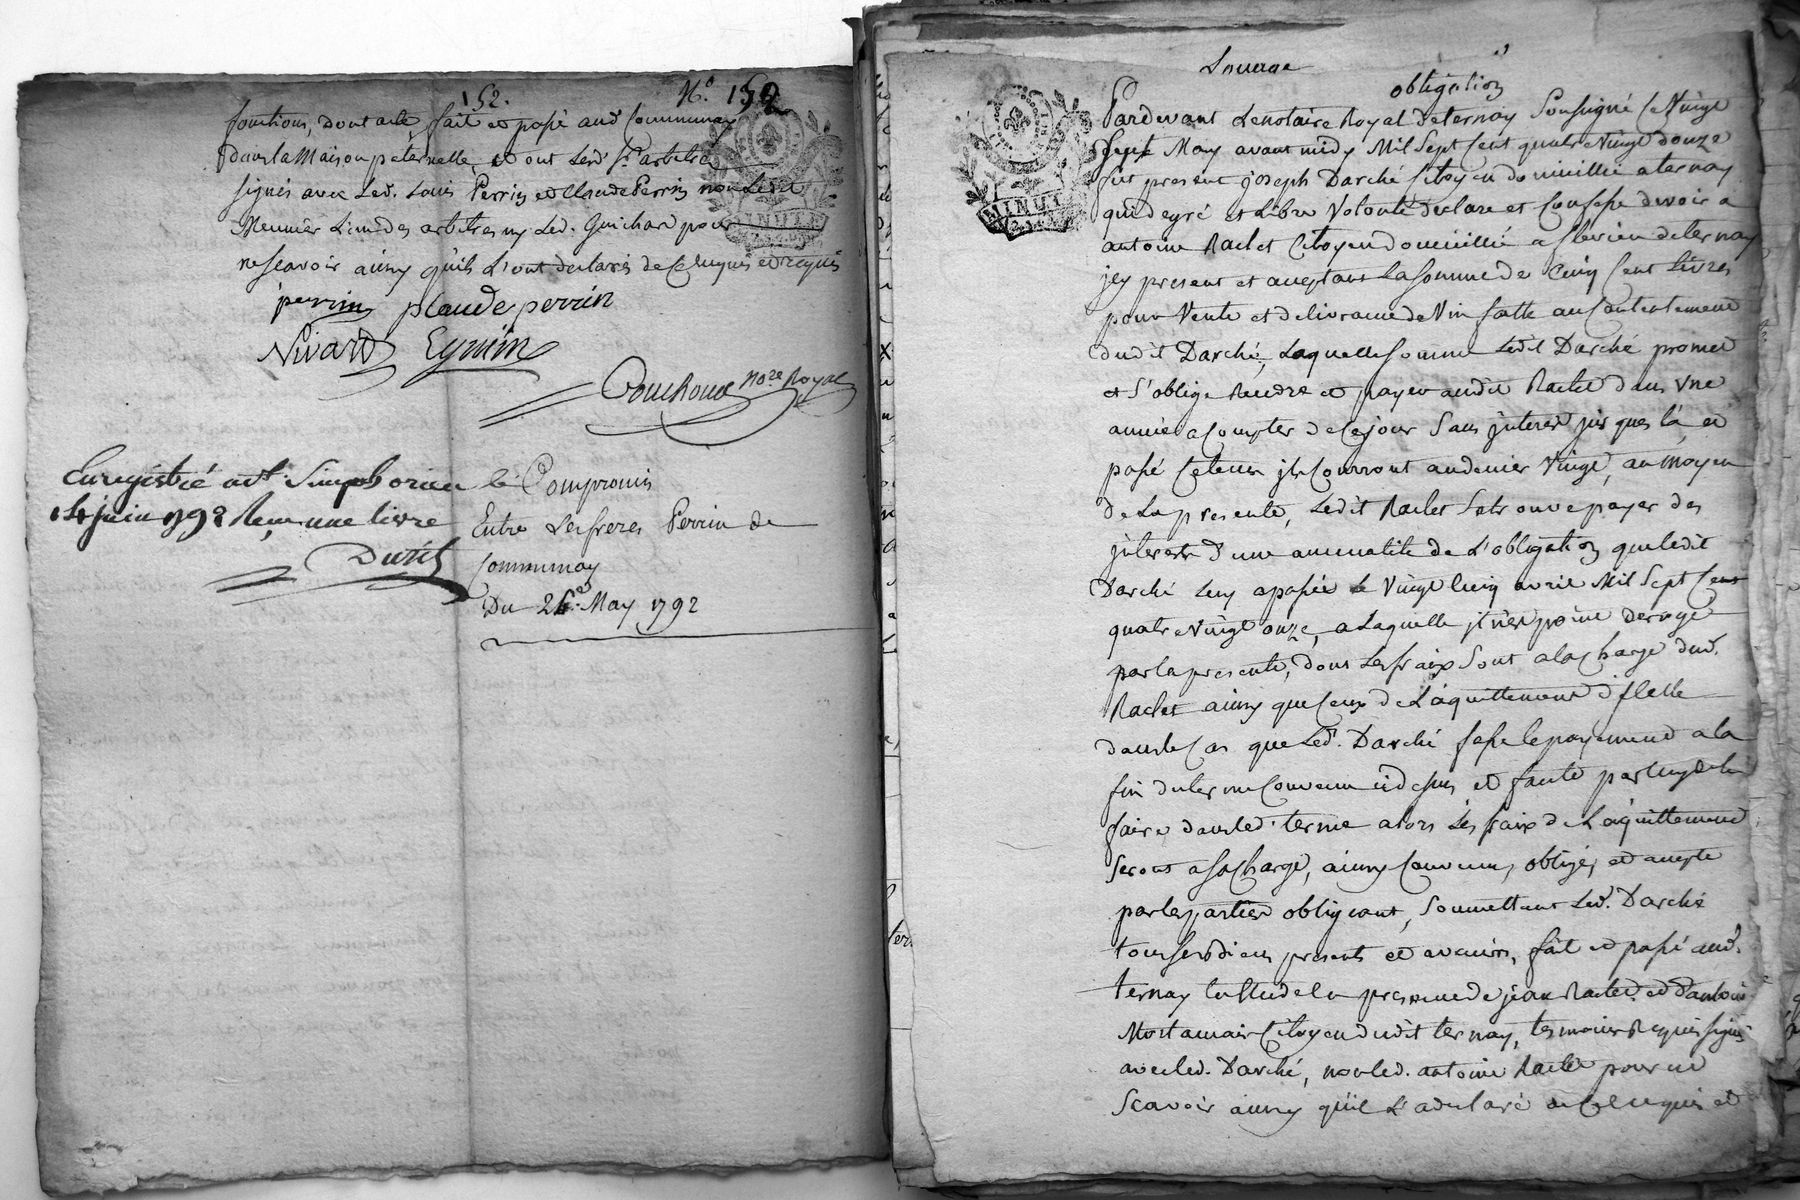 152. N.º 152
fonctions, dont acte, fait et passé aud. Communay
dans la Maison paternelle, et ont Lesd. Srs arbitres
signés avec Led. Louis Perrin et Claude Perrin non Ledit
Meunier L'un des arbitres ny Led. Guichard pour
ne scavoir ainsy qu'ils L'ont declarés de ce enquis et requis
perrin plaude perrin
Nivard Eymin
Couchoud No.re Royal
Enregistré a st Simphorien le
14 juin 1792 Reçu une livre
Duret
Compromis
Entre Les freres Perrin de
Communay
Du 26.e May 1792
obligation
Pardevant Le notaire Royal de ternay Soussigné Ce Vingt
Sept May avant midy Mil Sept Cent quatre Vingt douze
fut present joseph Darché Citoyen domicillié a ternay
qui de gré et Libre Volonté declare et Confesse devoir a
antoine Raclet Citoyen domicillié a de ternay
jcy present et acceptant La somme de Cinq Cent Livres
pour Vente et delivrance de Vin faitte au Contentement
dudit Darché, Laquelle somme Ledit Darché promet
et s'oblige Rendre et payer audit Raclet dans Une
année a Compter de Ce jour Sans jnterest jusques là, et
passé Ce terme jls Courront au denier Vingt, au moyen
de La presente, Ledit Raclet Se trouve payer des
jnterests d'une annuatité de L'obligation que Ledit
Darché Luy a passée Le Vingt Cinq avril Mil Sept Cent
quatre Vingt onze, a Laquelle jl n'est point derogé
par la presente, dont Les fraix Sont a la Charge dud.
Raclet ainsy que Ceux de L'aquittement d'jcelle
dans le Cas que Led. Darché fasse le payement a la
fin du terme Convenu cidessus et faute par luy de le
faire dans led. terme alors Les fraix de L'aquittement
Seront a sa Charge, ainsy Convenu, obligé, et accepté
par les parties obligeant, Soumettant Led. Darché
tous ses Biens presents et avenirs, fait et passé aud.
ternay Etude en presence de jean Raclet et d'antoine
Mortamais Citoyen dudit ternay, temoins Requis signés
avec led. Darché, non led. antoine Raclet pour ne
Scavoir ainsy qu'il L'a declaré de Ce enquis et